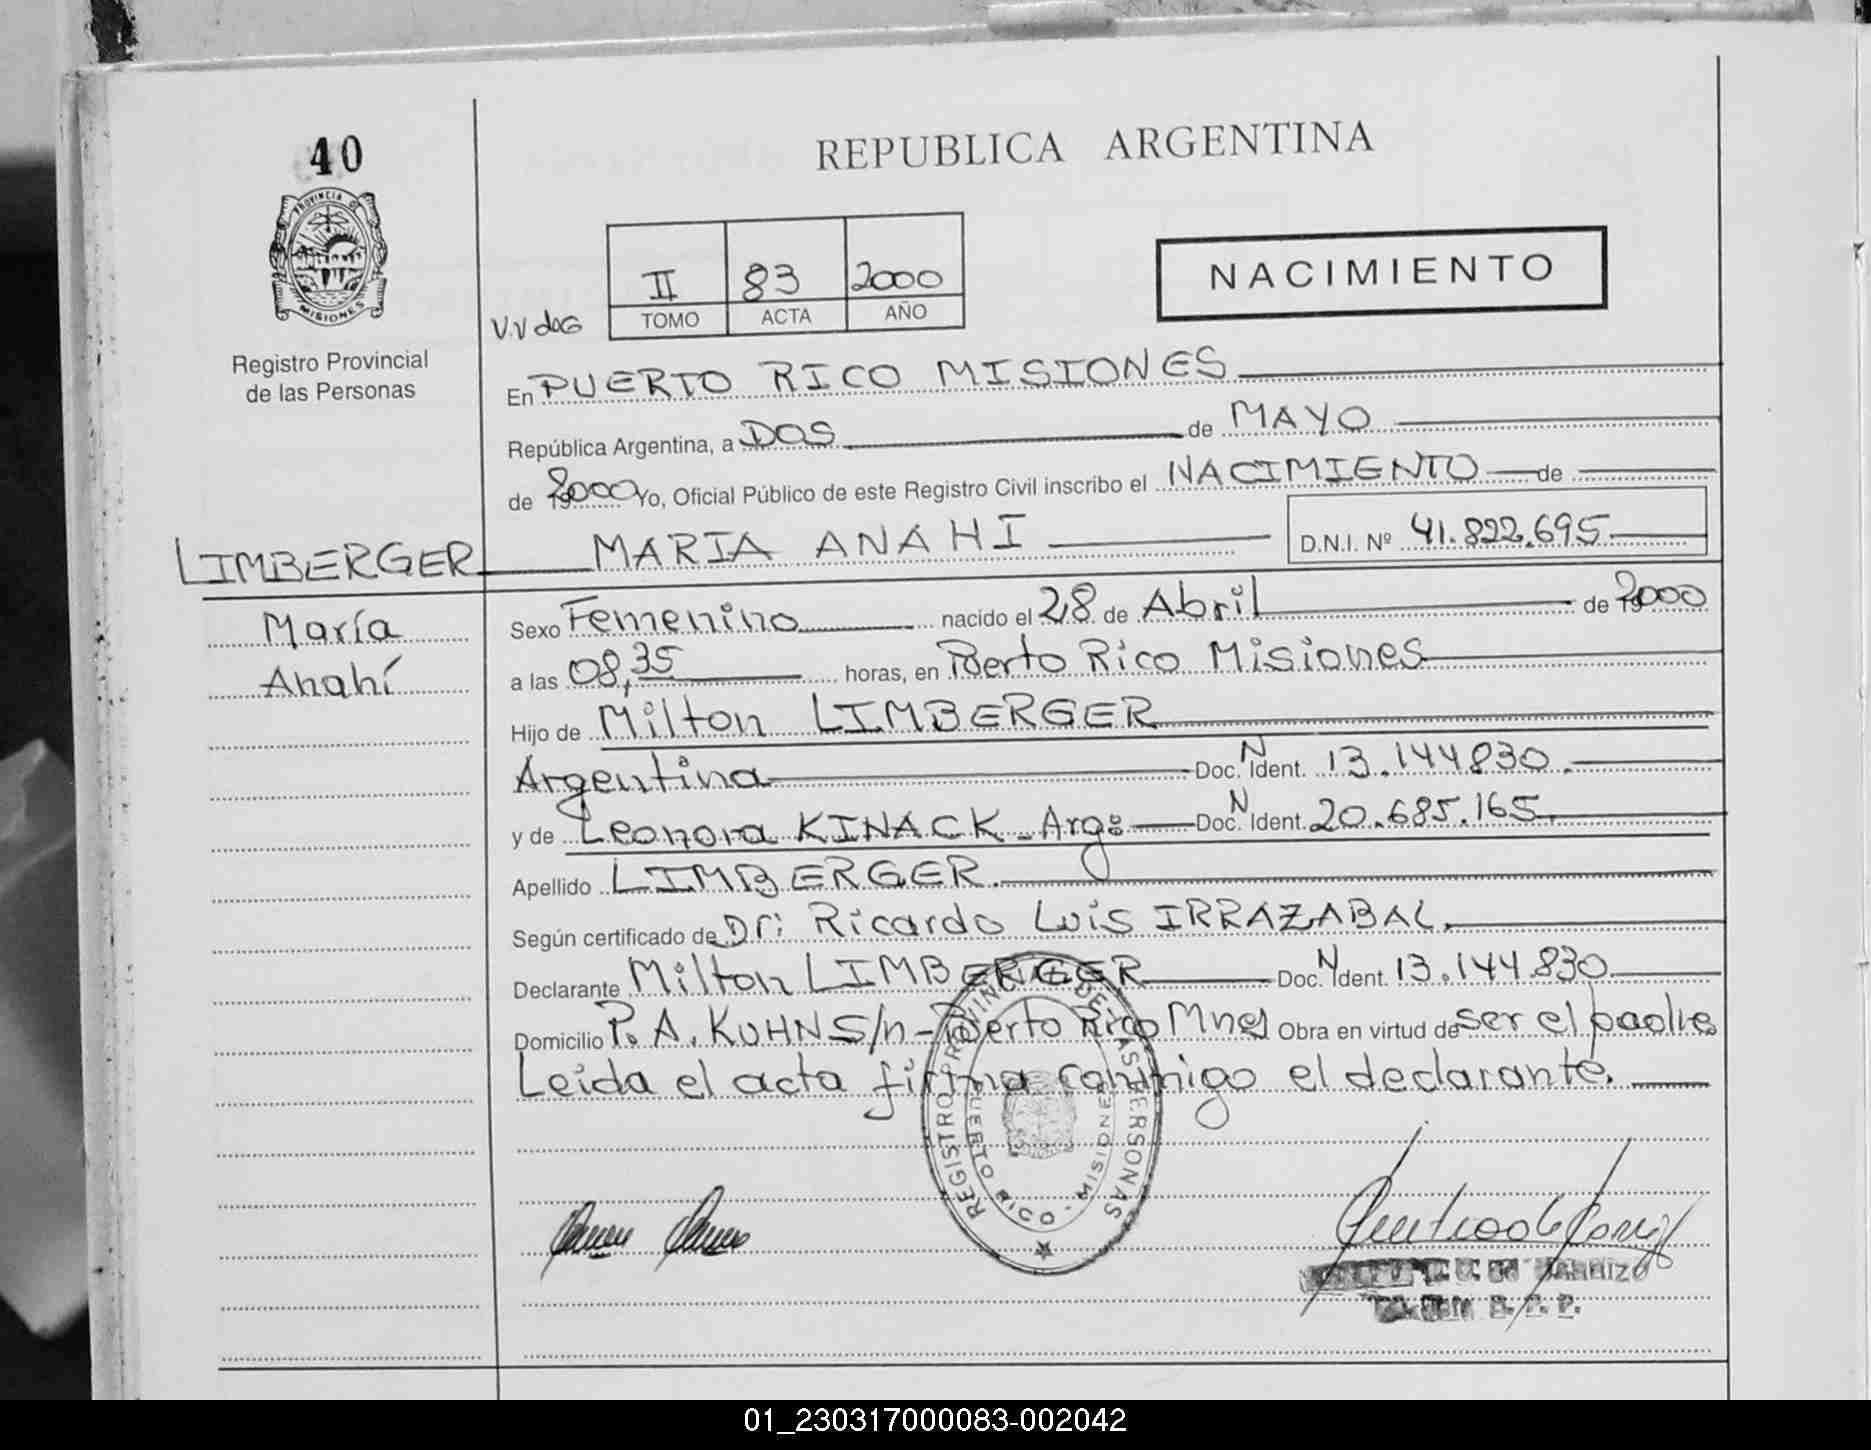 40
PROVINCIA DE
MISIONES
Registro Provincial
de las Personas
REPUBLICA ARGENTINA
II 83 2000
TOMO ACTA AÑO
NACIMIENTO
En PUERTO RICO MISIONES
República Argentina, a DOS de MAYO
de 2000 Yo, Oficial Público de este Registro Civil inscribo el NACIMIENTO de
LIMBERGER MARIA ANAHI D.N.I. Nº 41.822.695
María
Anahí
Sexo Femenino nacido el 28 de Abril de 2000
a las 08,35 horas, en Puerto Rico Misiones
Hijo de Milton LIMBERGER
Argentina Doc. N Ident. 13.144830.
y de Leonora KINACK - Arg: Doc. N Ident. 20.685.165.
Apellido LIMBERGER.
Según certificado de Dr: Ricardo Luis IRRAZABAL.
Declarante Milton LIMBERGER Doc. N Ident. 13.144.830.
Domicilio P. A. KUHN S/n - Puerto Rico Mnes Obra en virtud de ser el padre
Leida el acta firma conmigo el declarante.
REGISTRO PROVINCIAL DE LAS PERSONAS
PUERTO RICO - MISIONES
01_230317000083-002042